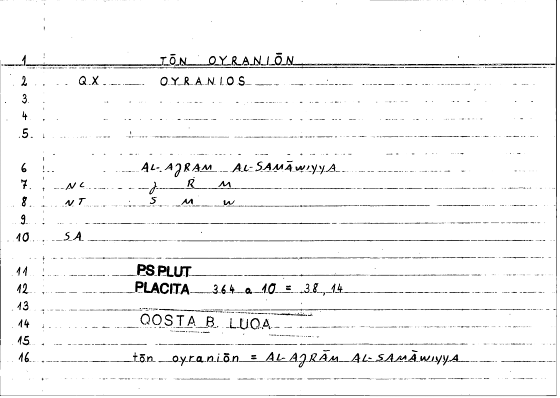 1 TŌN OYRANIŌN
2 QX OYRANIOS
3
4
5
6 AL-AJRAM AL-SAMĀWIYYA
7 NC J R M
8 NT S M W
9
10 SA
11 PS PLUT
12 PLACITA 364 a 10 = 38,14
13
14 QOSTA B. LUQA
15
16 tōn oyraniōn = AL-AJRĀM AL-SAMĀWIYYA